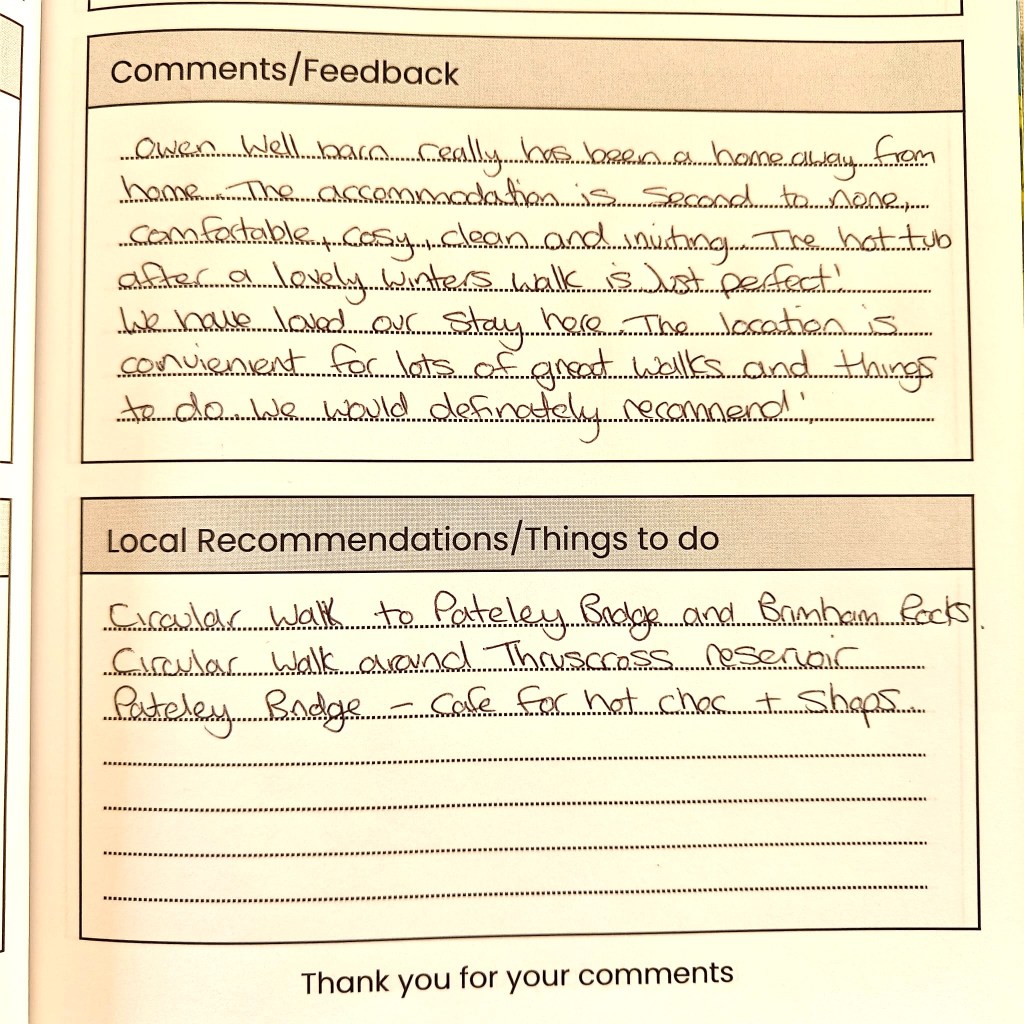 Comments/Feedback
Owen Well barn really has been a home away from
home. The accommodation is second to none,
comfortable, cosy, clean and inviting. The hot tub
after a lovely winters walk is Just perfect!
We have loved our stay here. The location is
convienient for lots of great walks and things
to do. We would definately recommend!
Local Recommendations/Things to do
Circular Walk to Pateley Bridge and Brimham Rocks.
Circular Walk around Thruscross reservoir
Pateley Bridge - Cafe for hot choc + Shops.
Thank you for your comments